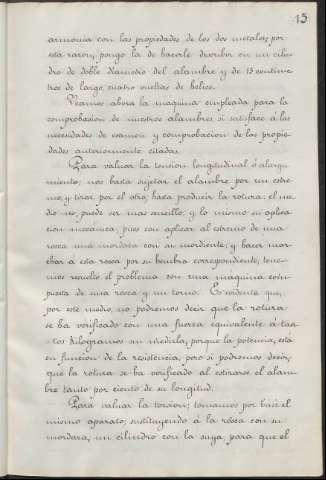 15
armonia con las propiedades de los dos metales; por
esta razon, pongo la de hacerle describir en un cilin-
dro de doble diametro del alambre y de 15 centime-
tros de largo, cuatro vueltas de helice.
Veamos ahora la maquina empleada para la
comprobasion de nuestros alambres si satisface á las
necesidades de examen y comprobacion de las propie-
dades anteriormente citadas.
Para valuar la tension longitudinal ó alarga-
miento; nos basta sujetar el alambre por un estre-
mo, y tirar por el otro, hasta producir la rotura: el me-
dio no puede ser mas sencillo, y lo mismo su aplica-
cion mecánica; pues con aplicar al estremo de una
rosca una mordaza con su mordiente, y hacer mar-
char á esta rosca por su hembra correspondiente, tene-
mos resuelto el problema con una maquina com-
puesta de una rosca y un torno. Es evidente que,
por este medio, no podremos decir que la rotura
se ha verificado con una fuerza equivalente á tan-
tos kilogramos sin medirla, porque la potencia, está
en funcion de la resistencia, pero si podremos decir,
que la rotura se ha verificado al estirarse el alam-
bre tanto por ciento de su longitud.
Para valuar la torsion; tomamos por base el
mismo aparato; sustituyendo á la rosca con su
mordaza, un cilindro con la suya, para que el